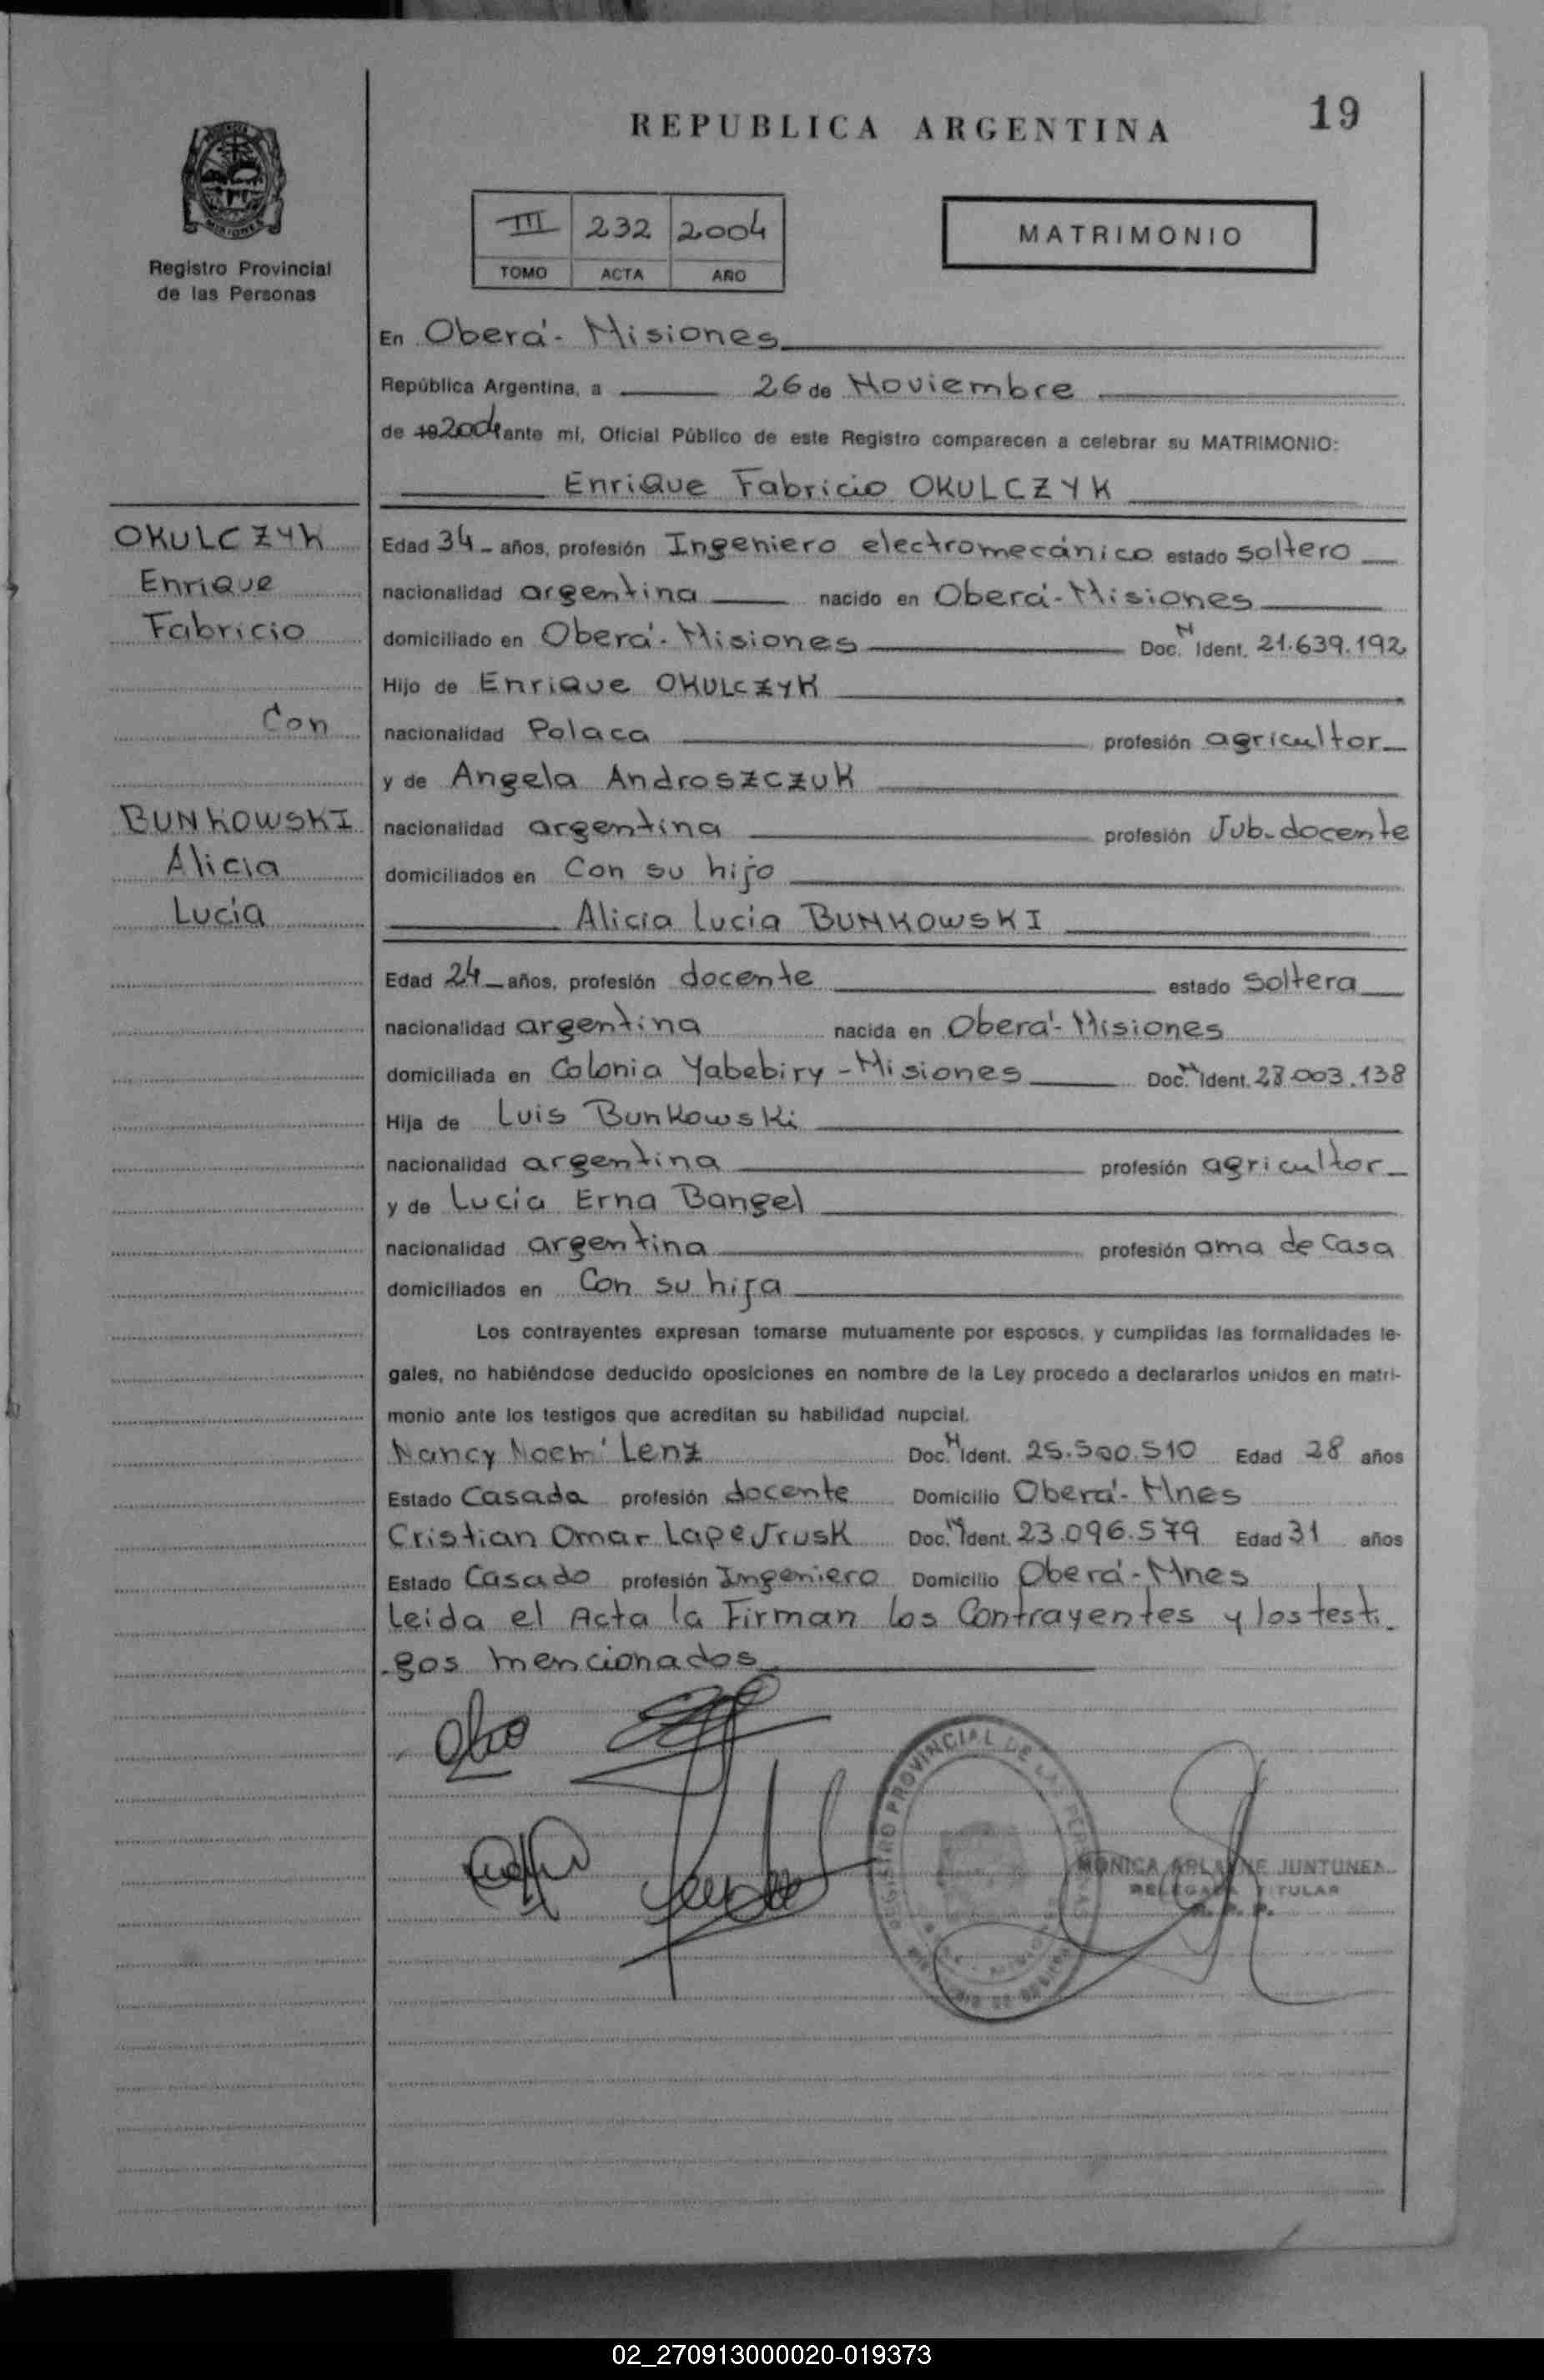 19
REPUBLICA ARGENTINA
Registro Provincial
de las Personas
III 232 2004
TOMO ACTA AÑO
MATRIMONIO
En Oberá - Misiones
República Argentina, a 26 de Noviembre
de 19 2004 ante mí, Oficial Público de este Registro comparecen a celebrar su MATRIMONIO:
Enrique Fabricio OKULCZYK
OKULCZYK
Enrique
Fabricio
Con
BUNKOWSKI
Alicia
Lucía
Edad 34 años, profesión Ingeniero electromecánico estado soltero
nacionalidad argentina nacido en Oberá - Misiones
domiciliado en Oberá - Misiones Doc. N Ident. 21.639.192
Hijo de Enrique OKULCZYK
nacionalidad Polaca profesión agricultor
y de Angela Androszczuk
nacionalidad argentina profesión Jub-docente
domiciliados en Con su hijo
Alicia Lucía BUNKOWSKI
Edad 24 años, profesión docente estado soltera
nacionalidad argentina nacida en Oberá - Misiones
domiciliada en Colonia Yabebiry - Misiones Doc. N Ident. 28.003.138
Hija de Luis Bunkowski
nacionalidad argentina profesión agricultor
y de Lucía Erna Bangel
nacionalidad argentina profesión ama de Casa
domiciliados en Con su hija
Los contrayentes expresan tomarse mutuamente por esposos, y cumplidas las formalidades le-
gales, no habiéndose deducido oposiciones en nombre de la Ley procedo a declararlos unidos en matri-
monio ante los testigos que acreditan su habilidad nupcial.
Nancy Noemí Lenz Doc. N Ident. 25.500.510 Edad 28 años
Estado Casada profesión docente Domicilio Oberá - Mnes
Cristian Omar Lapejrusk Doc. N Ident. 23.096.579 Edad 31 años
Estado Casado profesión Ingeniero Domicilio Oberá - Mnes
Leida el Acta la Firman los Contrayentes y los testi-
gos mencionados
REGISTRO PROVINCIAL DE LAS PERSONAS
MONICA ARLENE JUNTUNEN
DELEGADA TITULAR
R. P. P.
02_270913000020-019373